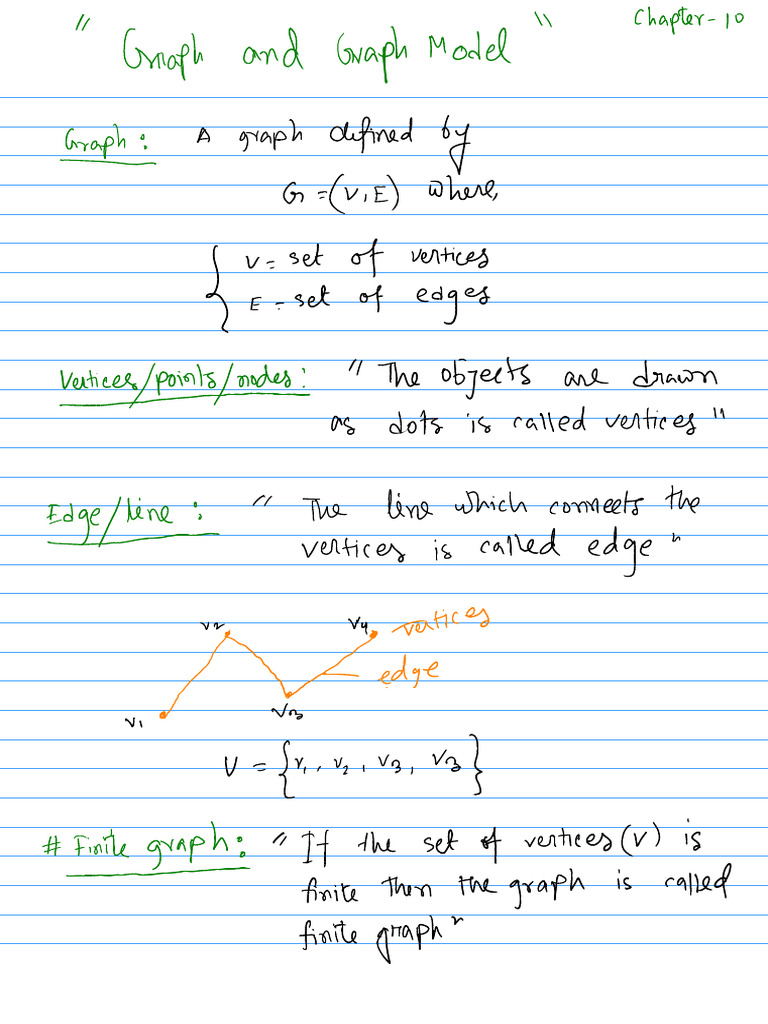 " Graph and Graph Model " Chapter-10
Graph: A graph defined by
G = (V, E) where,
V = set of vertices
E = set of edges
Vertices/points/nodes: " The objects are drawn
as dots is called vertices "
Edge/line: " The line which connects the
vertices is called edge "
v2 v4 vertices
edge
v1 v3
V = {v1, v2, v3, v3}
# Finite graph: " If the set of vertices (V) is
finite then the graph is called
finite graph "